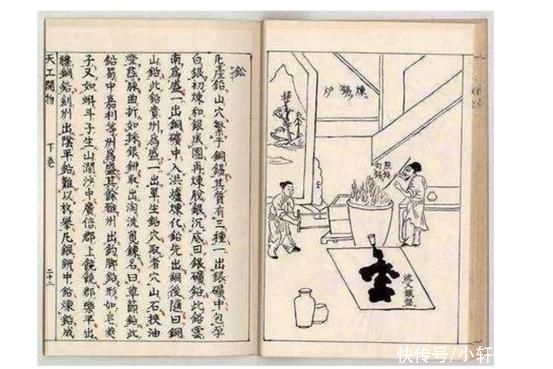 煉錫炉
點鉛
勾錫
流入鐵盤
鉛
凡產鉛山穴繁于銅錫其質有三種一出銀礦中包孕
白銀初煉和銀成團再煉脫銀沉底曰銀礦鉛此鉛雲
南爲盛一出銅礦中入洪爐煉化鉛先出銅後隨曰銅
山鉛此鉛貴州爲盛一出單生鉛穴取者穴山石挾油
燈尋脉曲折如採銀鉚取出淘洗煎鍊名曰草節鉛此
鉛蜀中嘉利等州爲盛其餘雅州出釣脚鉛形如皂莢
子又如蝌斗子生山澗沙中廣信郡上饒饒郡樂平出
雜銅鉛劍州出陰平鉛難以枚舉凡銀鉚中鉛煉鉛成
天工開物 下卷 二十二
快传号/小轩